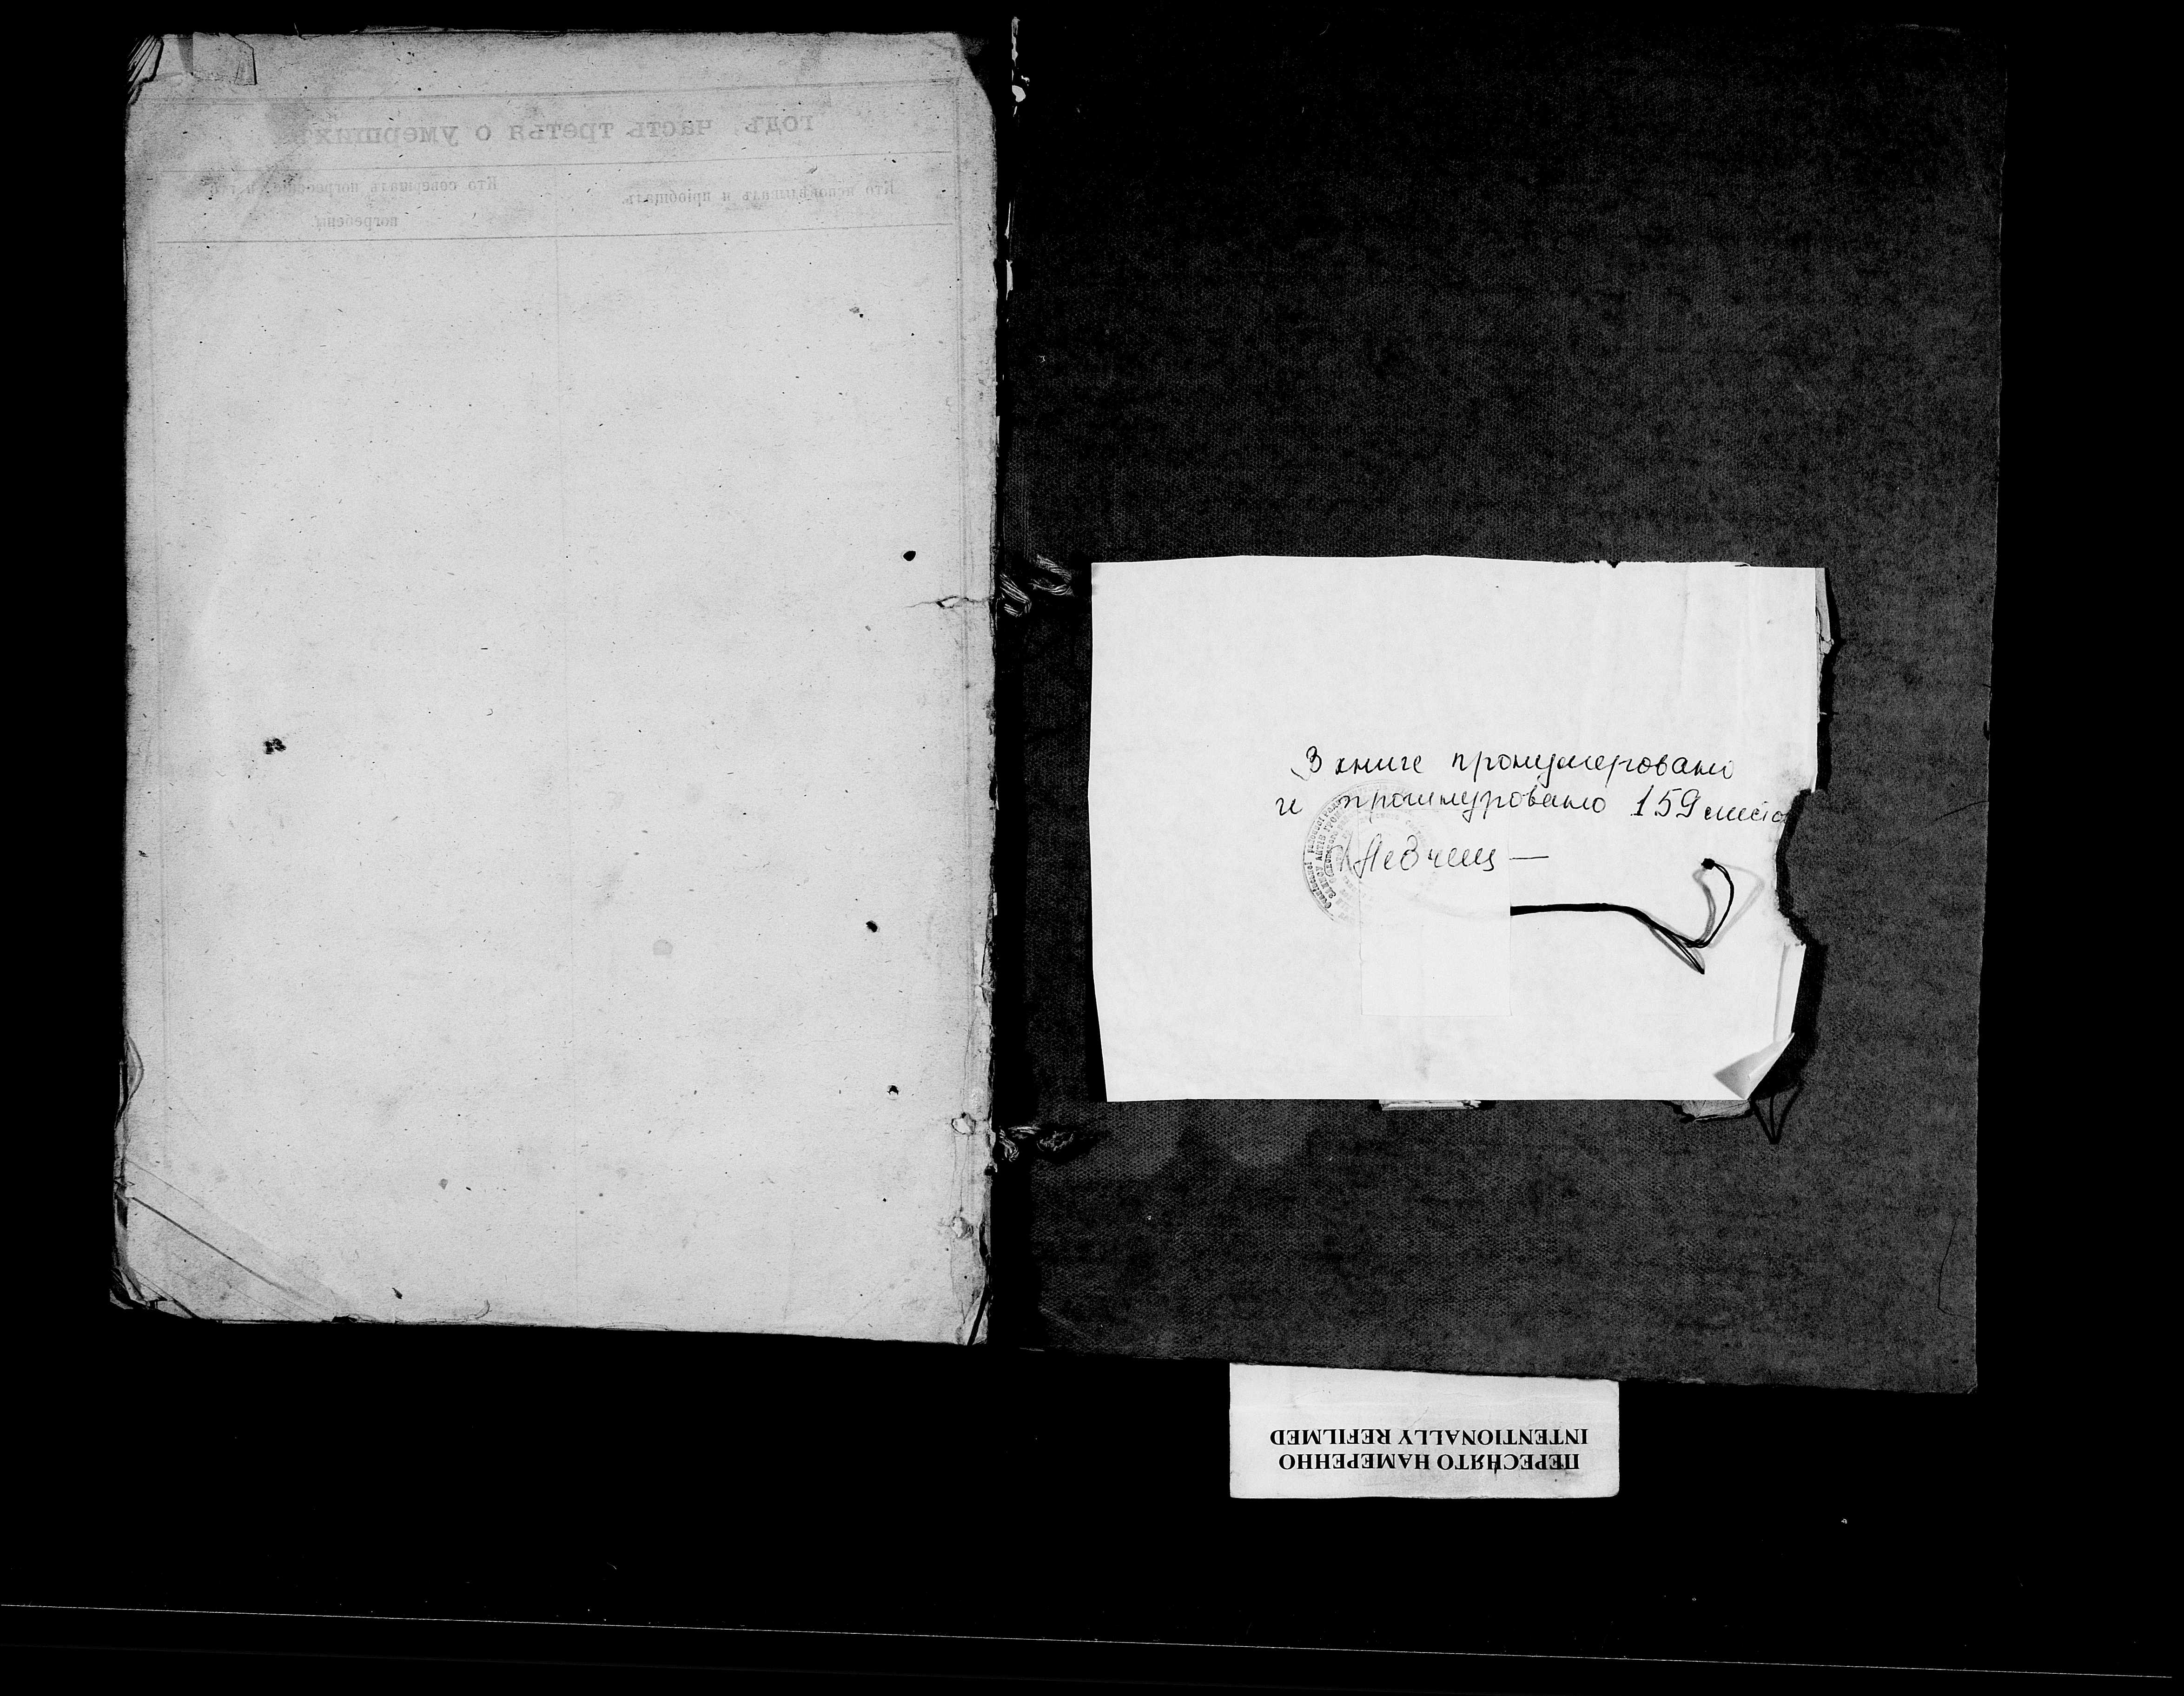 годъ, часть третья о умершихъ
Кто исповѣдывалъ и пріобщалъ.
Кто совершалъ погребеніе и гдѣ
погребены.
В книге пронумеровано
и прошнуровано 159 листо
ПЕРЕСНЯТО НАМЕРЕННО
INTENTIONALLY REFILMED